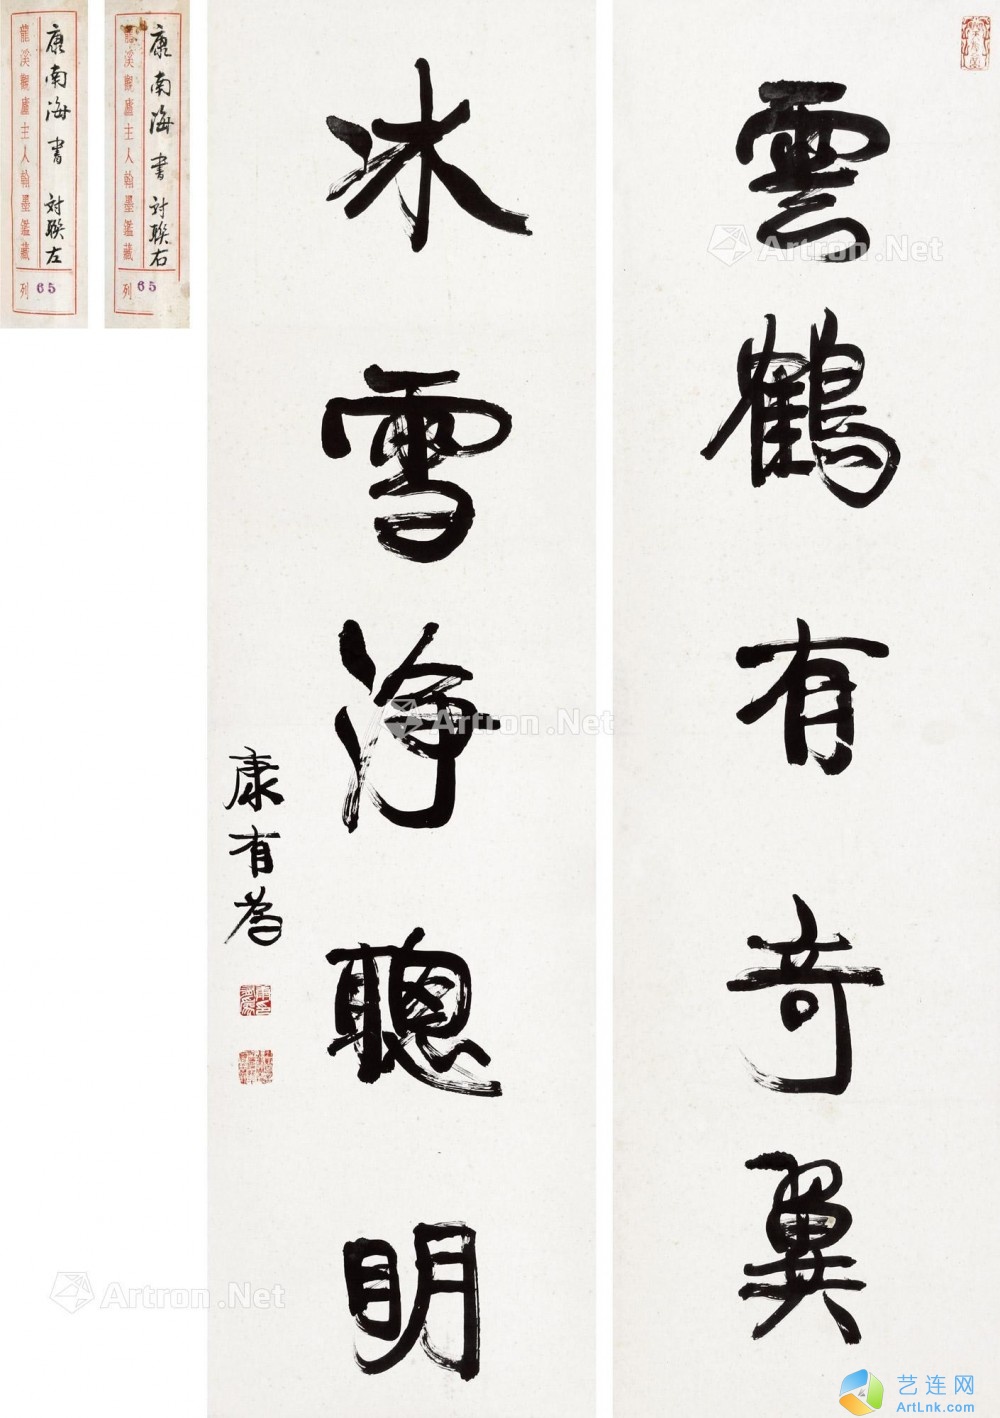 雲鶴有奇翼
冰雪淨聰明
康有為
康南海書 対聯右
龍溪觀廬主人翰墨鑑藏
列 65
康南海書 対聯左
龍溪觀廬主人翰墨鑑藏
列 65
Artron.Net
Artron.Net
Artron.Net
艺连网
ArtLnk.com